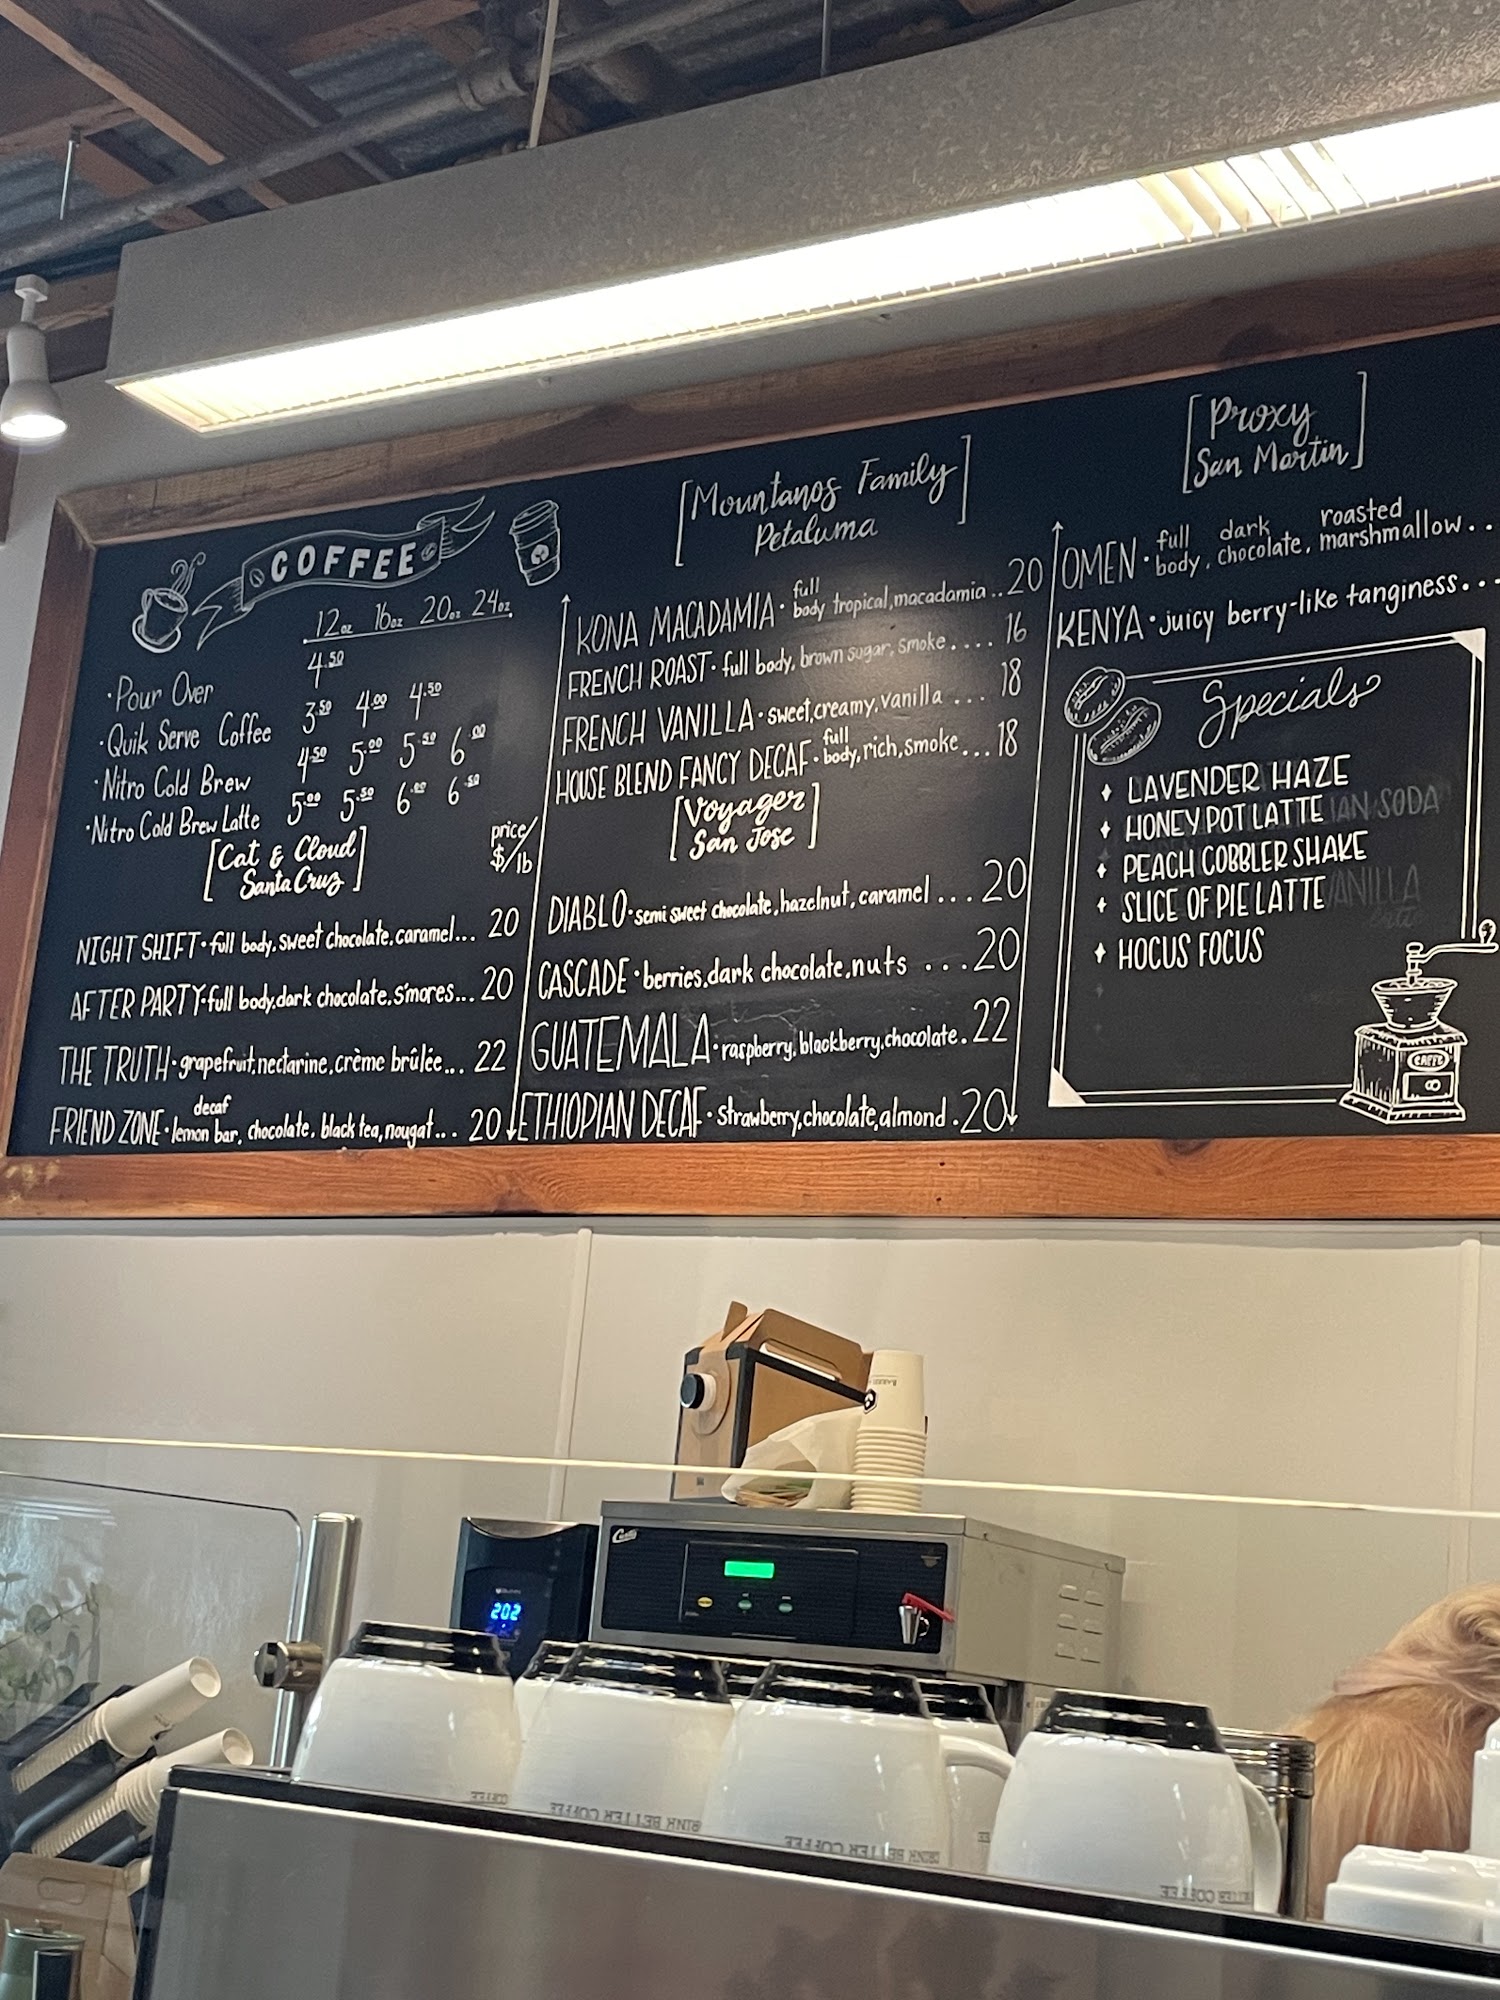 COFFEE
12oz 16oz 20oz 24oz
· Pour Over 4.50
· Quik Serve Coffee 3.50 4.00 4.50
· Nitro Cold Brew 4.50 5.00 5.50 6.00
· Nitro Cold Brew Latte 5.00 5.50 6.00 6.50
[Cat & Cloud
Santa Cruz]
price/
$/lb
NIGHT SHIFT · full body, sweet chocolate, caramel... 20
AFTER PARTY · full body, dark chocolate, s'mores... 20
THE TRUTH · grapefruit, nectarine, crème brûlée... 22
FRIEND ZONE · decaf lemon bar, chocolate, black tea, nougat... 20
[Mountanos Family
Petaluma]
KONA MACADAMIA · full body tropical, macadamia.. 20
FRENCH ROAST · full body, brown sugar, smoke.... 16
FRENCH VANILLA · sweet, creamy, vanilla ... 18
HOUSE BLEND FANCY DECAF · full body, rich, smoke... 18
[Voyager
San Jose]
DIABLO · semi sweet chocolate, hazelnut, caramel ... 20
CASCADE · berries, dark chocolate, nuts ... 20
GUATEMALA · raspberry, blackberry, chocolate. 22
ETHIOPIAN DECAF · strawberry, chocolate, almond . 20
[Proxy
San Martin]
OMEN · full body, dark chocolate, roasted marshmallow..
KENYA · juicy berry-like tanginess...
Specials
LAVENDER HAZE
HONEY POT LATTE
IAN SODA
PEACH COBBLER SHAKE
SLICE OF PIE LATTE
VANILLA
HOCUS FOCUS
CAFFE
Curtis
202
COFFEE
DRINK BETTER COFFEE
DRINK BETTER COFFEE
BETTER COFFEE